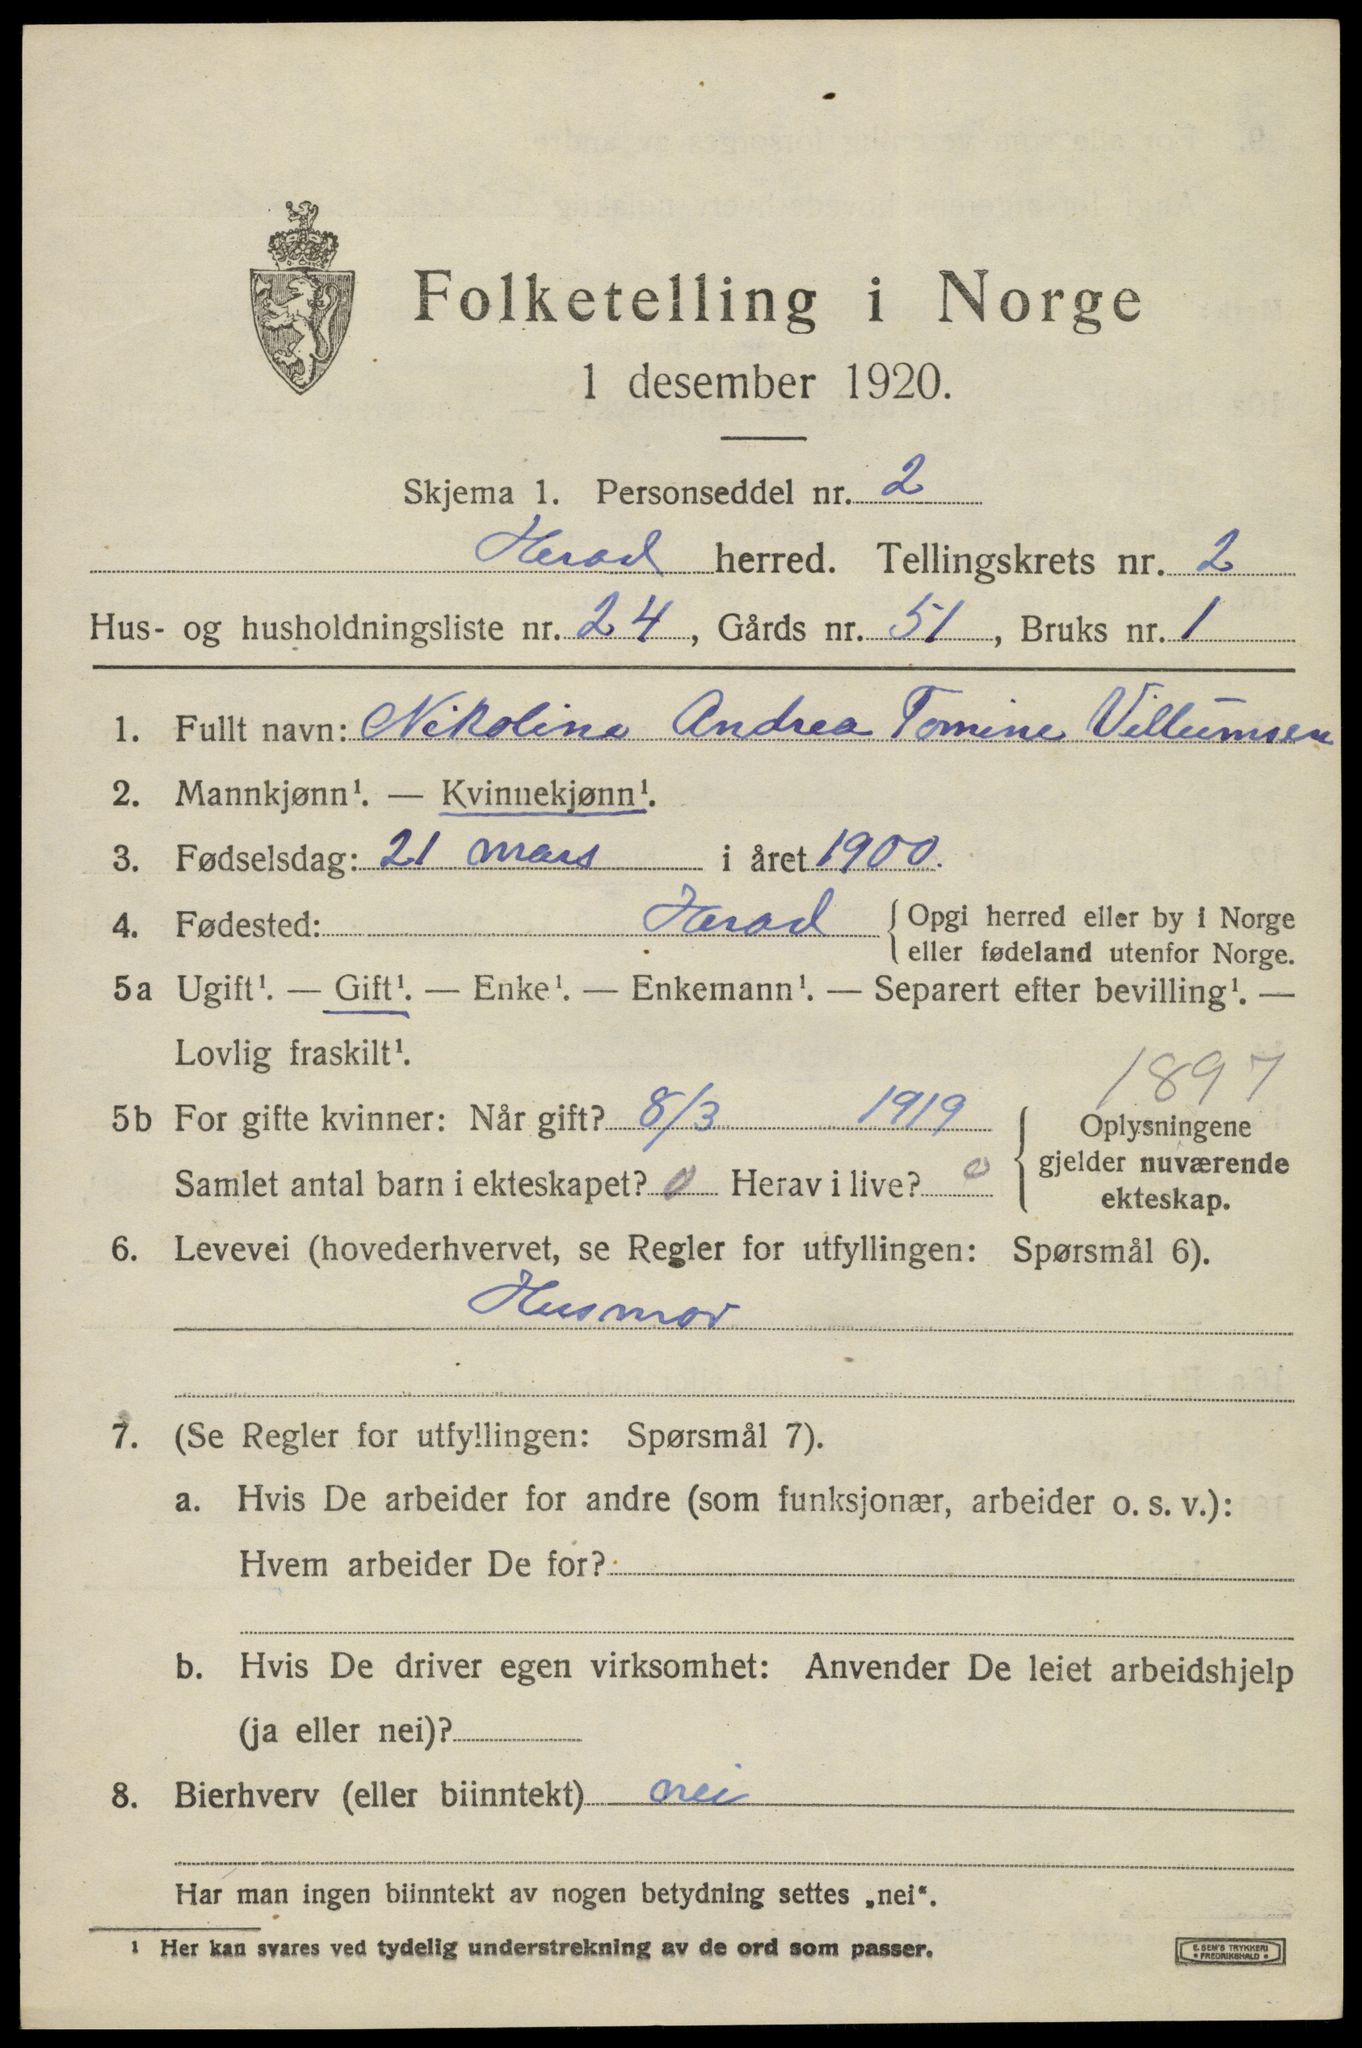 Folketelling i Norge
1 desember 1920.
Skjema 1. Personseddel nr. 2
Herad herred. Tellingskrets nr. 2
Hus- og husholdningsliste nr. 24, Gårds nr. 51, Bruks nr. 1
1. Fullt navn: Nikoline Andrea Tomine Villumsen
2. Mannkjønn¹. — Kvinnekjønn¹.
3. Fødselsdag: 21 mars i året 1900.
4. Fødested: Herad { Opgi herred eller by i Norge
eller fødeland utenfor Norge.
5a Ugift¹. — Gift¹. — Enke¹. — Enkemann¹. — Separert efter bevilling¹. —
Lovlig fraskilt¹.
1897
5b For gifte kvinner: Når gift? 8/3 1919
Samlet antal barn i ekteskapet? 0 Herav i live? 0
{ Oplysningene
gjelder nuværende
ekteskap.
6. Levevei (hovederhvervet, se Regler for utfyllingen: Spørsmål 6).
Husmor
7. (Se Regler for utfyllingen: Spørsmål 7).
a. Hvis De arbeider for andre (som funksjonær, arbeider o. s. v.):
Hvem arbeider De for?
b. Hvis De driver egen virksomhet: Anvender De leiet arbeidshjelp
(ja eller nei)?
8. Bierhverv (eller biinntekt) nei
Har man ingen biinntekt av nogen betydning settes „nei“.
¹ Her kan svares ved tydelig understrekning av de ord som passer.
E. SEM'S TRYKKERI
• FREDRIKSHALD •